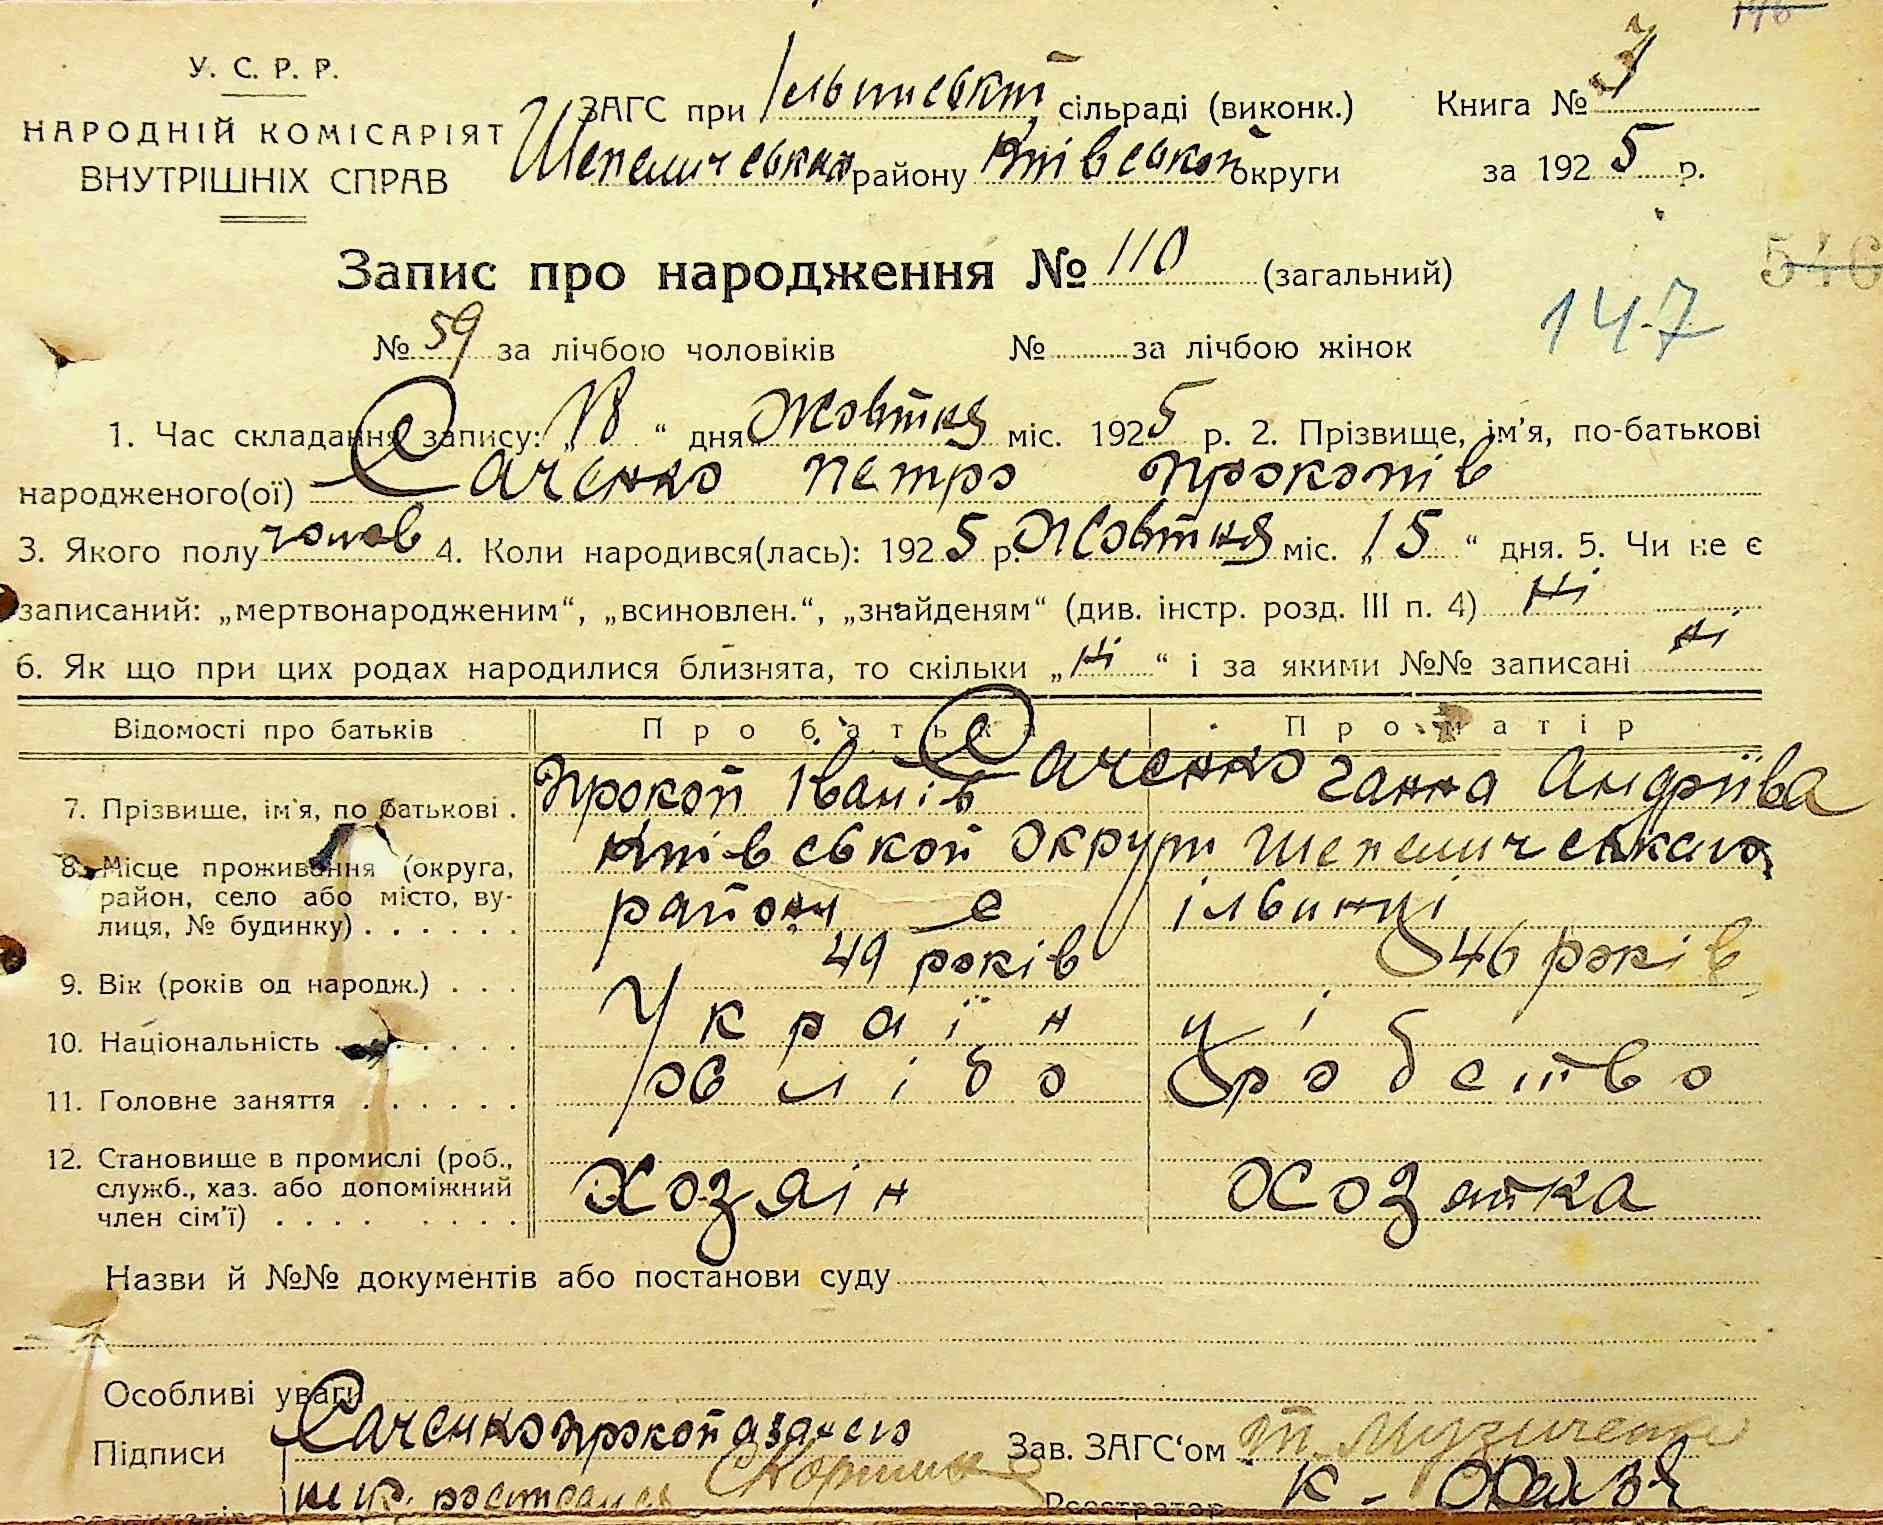 У. С. Р. Р.
НАРОДНІЙ КОМІСАРІЯТ
ВНУТРІШНІХ СПРАВ
ЗАГС при сільраді (виконк.)
Шепеличськаго району Київськой округи
Книга № 3
за 1925 р.
Запис про народження № 110 (загальний)
№ 59 за лічбою чоловіків № за лічбою жінок
147
546
1. Час складання запису: „18“ дня Жовтня міс. 1925 р. 2. Прізвище, ім'я, по-батькові
народженого(ої) Саченко Петро Прокопів
3. Якого полу чолов 4. Коли народився(лась): 1925 р. Жовтня міс. „15“ дня. 5. Чи не є
записаний: „мертвонародженим“, „всиновлен.“, „знайденям“ (див. інстр. розд. III п. 4) Ні
6. Як що при цих родах народилися близнята, то скільки „Ні“ і за якими №№ записані Ні
Відомості про батьків Про батька Про матір
7. Прізвище, ім'я, по батькові . Прокоп Іванів Саченко Ганна Андріїва
8. Місце проживання (округа, район, село або місто, вулиця, № будинку) . . . . . . Київськой округи Шепеличськаго
району с ільинці
9. Вік (років од народж.) . . . 49 років 46 років
10. Національність . . . . . . Україн ці
11. Головне заняття . . . . . . робство
12. Становище в промислі (роб., служб., хаз. або допоміжний член сім'ї) . . . . . . . . Хозяін Хозяйка
Назви й №№ документів або постанови суду
Особливі уваги
Підписи Саченко Прокоп
Зав. ЗАГС'ом
Реєстратор К.